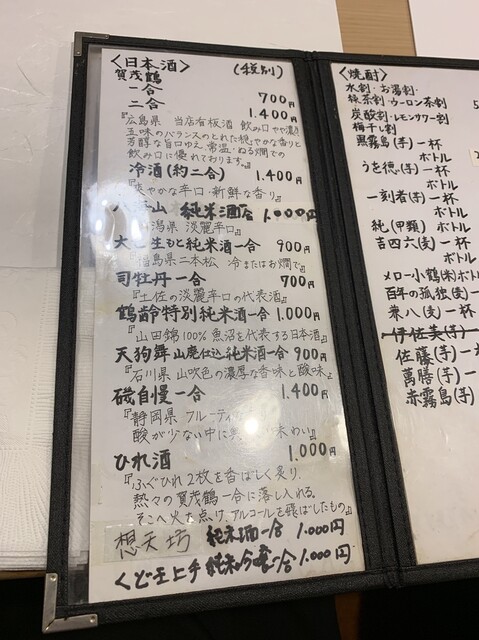 〈日本酒〉 (税別)
賀茂鶴
一合 700円
二合 1.400円
『広島県 当店看板酒 飲み口やや濃い
五味のバランスのとれた穏やかな香りと
芳醇な旨口ゆえ、常温・ぬる燗での
飲み口に優れております。』
冷酒(約二合) 1.400円
やかな辛口・新鮮な香り』
山 純米酒 1.000円
潟県 淡麗辛口』
大七生もと純米酒一合 900円
島県二本松 冷またはお燗で』
司牡丹一合 700円
『土佐の淡麗辛口の代表酒』
鶴齢特別純米酒一合 1.000円
『山田錦100% 魚沼を代表する日本酒』
天狗舞 山廃仕込純米酒一合 900円
『石川県 山吹色の濃厚な香味と酸味』
磯自慢一合 1.400円
『静岡県 フルーティ
酸が少ない中に 味わい』
ひれ酒 1.000円
『ふぐひれ2枚を香ばしく炙り、
熱々の賀茂鶴一合に落し入れる。
そこへ火を点け、アルコールを飛ばしたもの』
想天坊 純米酒一合 1.000円
くどき上手 純米吟醸一合 1.000円
〈焼酎〉
水割・お湯割・
緑茶割・ウーロン茶割
炭酸割・レモンサワー割
梅干し割
黒霧島(芋)一杯
ボトル
うを徳(芋)一杯
ボトル
一刻者(芋)一杯
ボトル
純(甲類) ボトル
吉四六(麦)一杯
ボトル
メロー小鶴(米)ボトル
百年の孤独(麦)一
兼八(麦)一杯
伊佐美(芋)
佐藤(芋)一
萬膳(芋)一
赤霧島(芋)